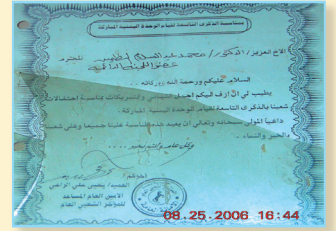 بمناسبة الذكرى التاسعة لقيام الوحدة اليمنية المباركة
الاخ العزيز / الدكتور / محمد عبد السلام المحترم
السلام عليكم ورحمة الله وبركاته
يطيب لي أن أزف اليكم أجمل التهاني والتبريكات بمناسبة احتفالات
شعبنا بالذكرى التاسعة لقيام الوحدة اليمنية المباركة
داعياً المولى سبحانه وتعالى أن يعيد هذه المناسبة علينا جميعاً وعلى شعبنا
بالخير والنماء
وكل عام وأنتم بخير
أخوكم
العميد/ يحيى علي الراعي
الأمين العام المساعد
للمؤتمر الشعبي العام
08.25.2006 16:44